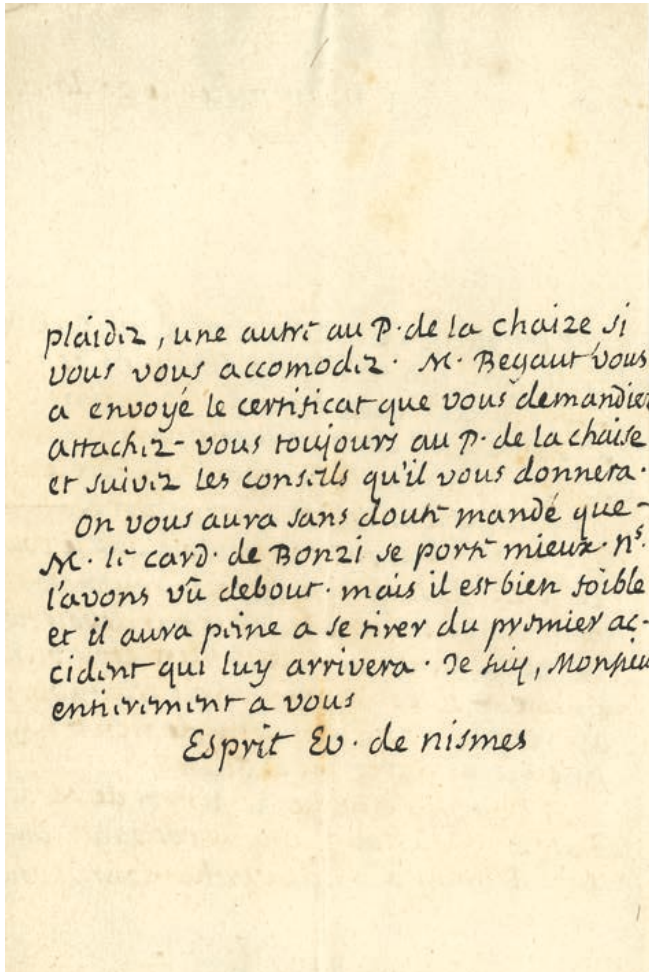 plaider, une autre au P. de la chaize si
vous vous accomodez. M. Begaut vous
a envoyé le certificat que vous demandiez
attachez-vous toujours au P. de la chaise
et suivez les conseils qu'il vous donnera.
On vous aura sans doute mandé que
M. le card. de Bonzi se porte mieux. ns.
l'avons vû debout. mais il est bien foible
et il aura peine a se tirer du premier ac-
cident qui luy arrivera. Je suy, Monsieu
entierement a vous
Esprit Ev. de nismes